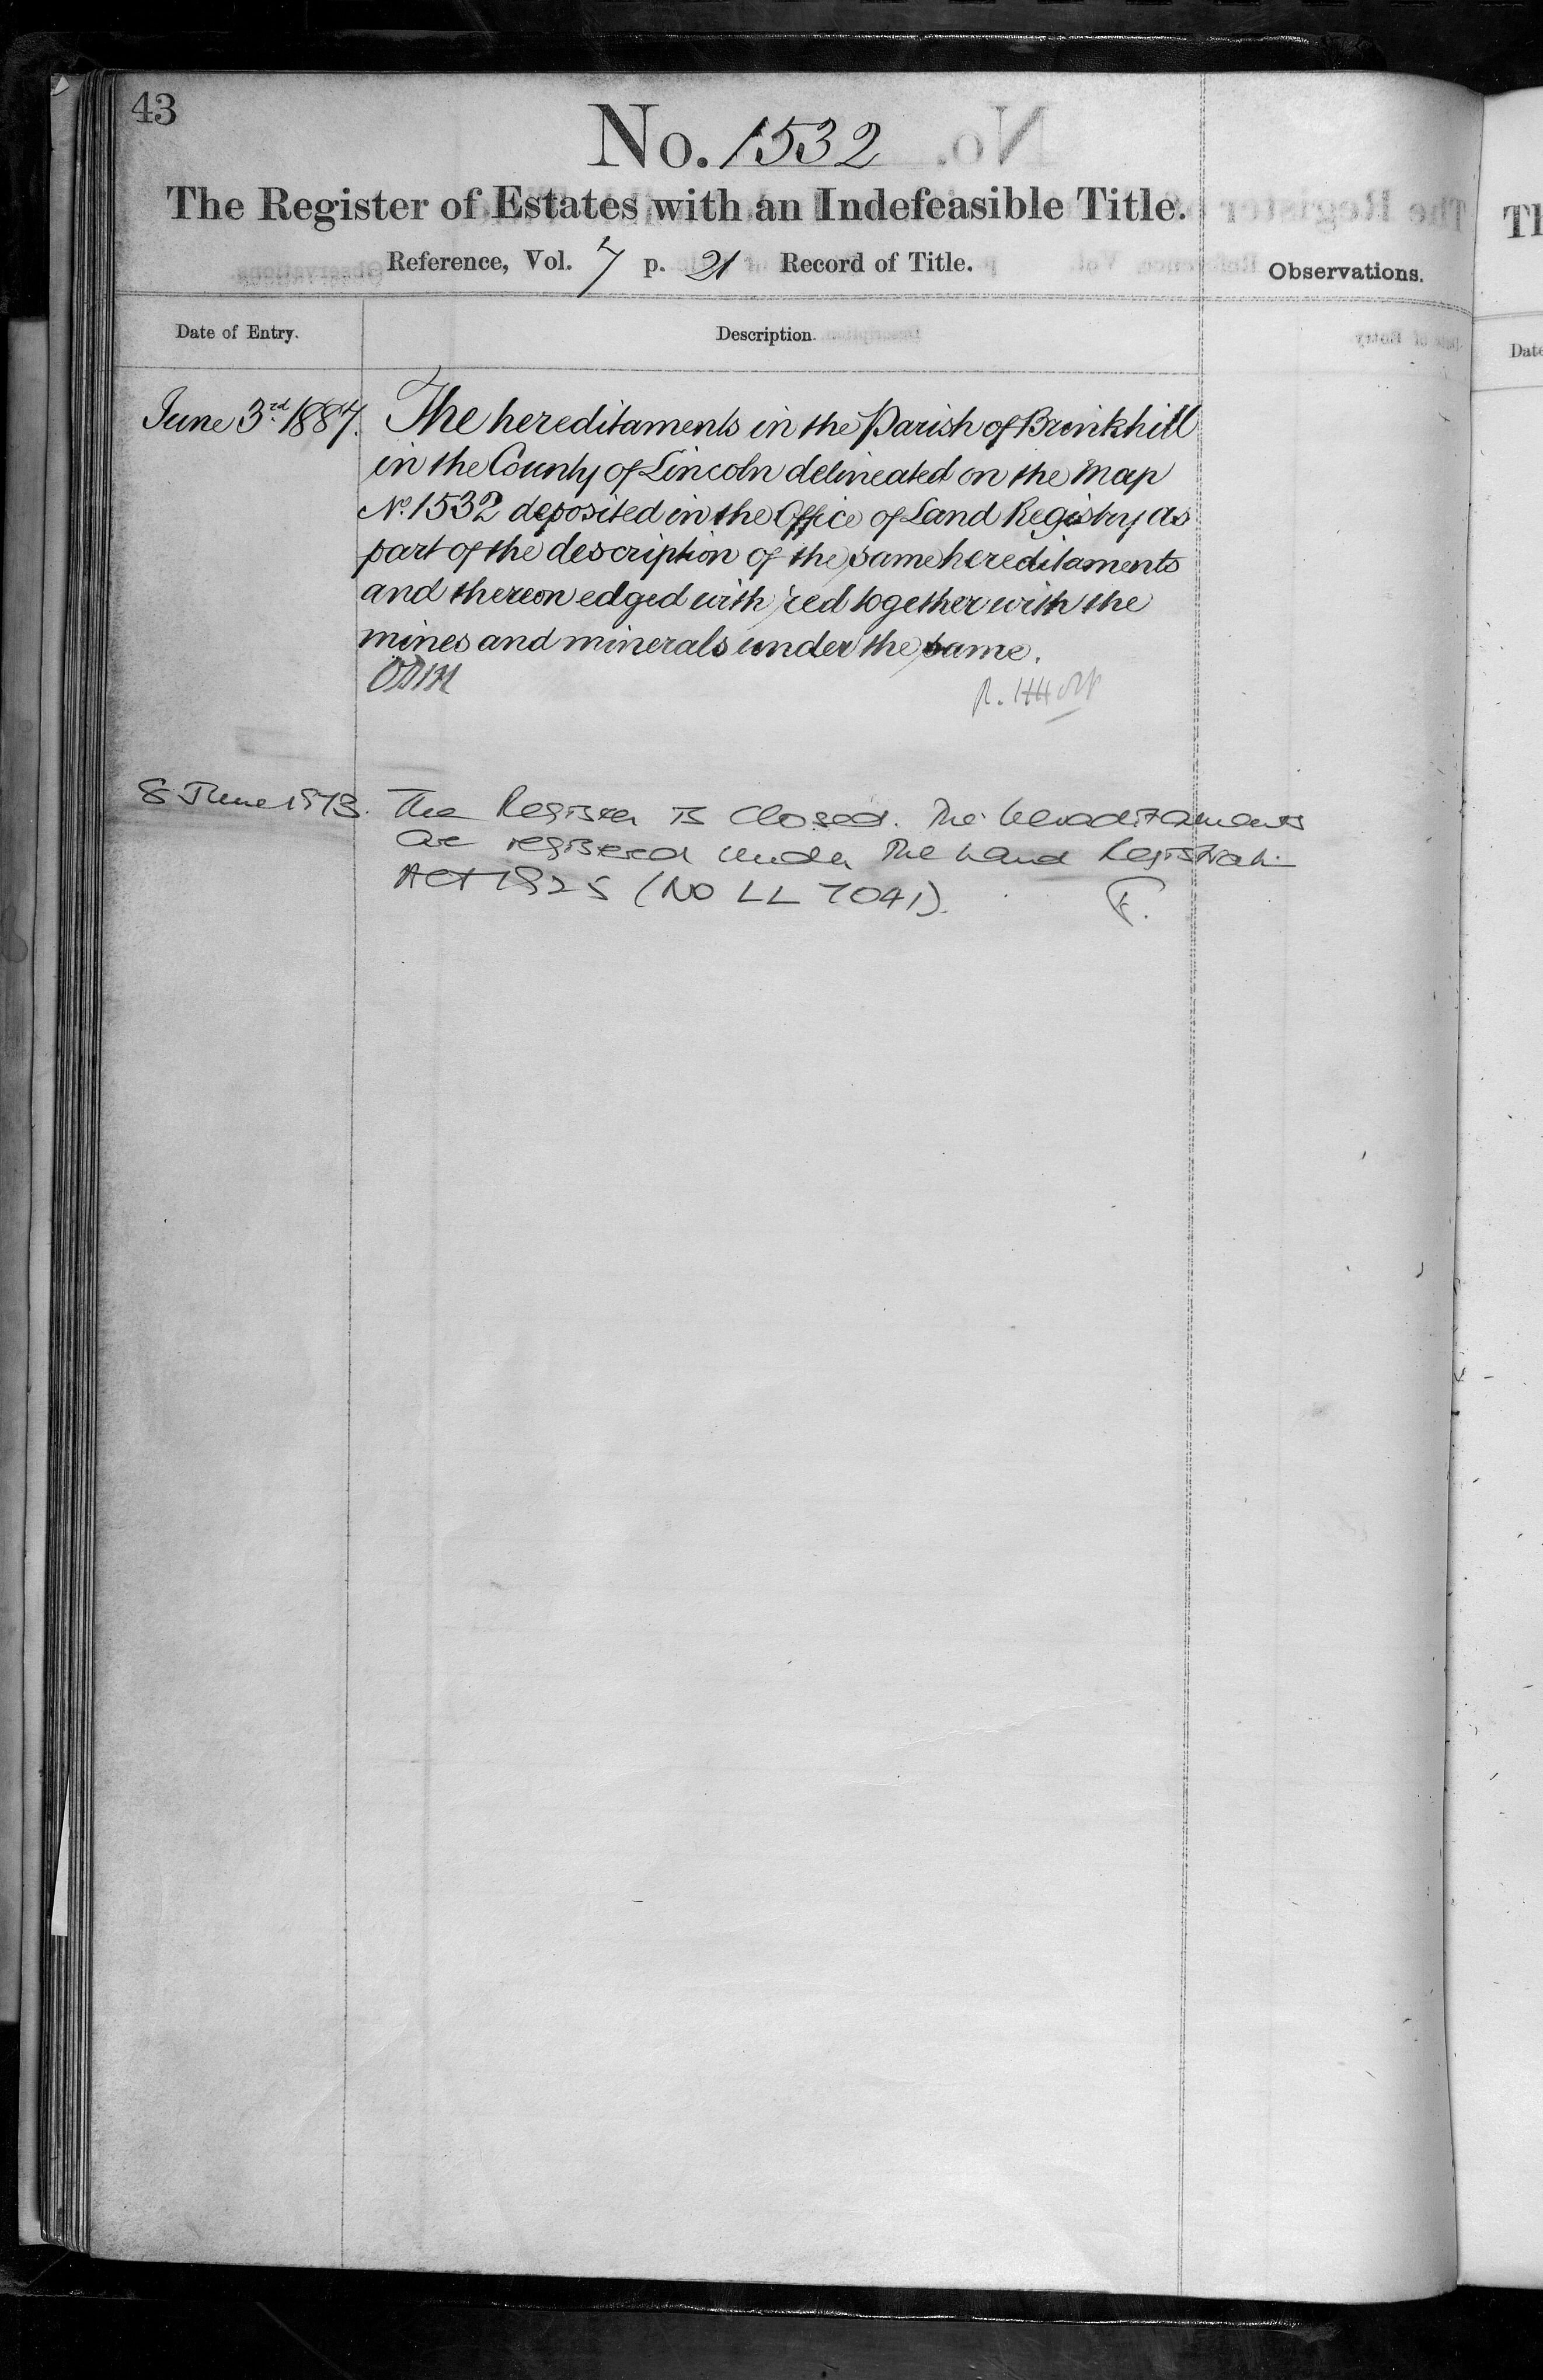 43
No. 1532
The Register of Estates with an Indefeasible Title.
Reference, Vol. 7 p. 21 Record of Title.
Observations.
Date of Entry.
Description.
June 3rd 1887. The hereditaments in the Parish of Brinkhill
in the County of Lincoln delineated on the Map
No. 1532 deposited in the Office of Land Registry as
part of the description of the same hereditaments
and thereon edged with red together with the
mines and minerals under the same.
8 June 1973. The Register is closed. The hereditaments
are registered under the Land Registration
Act 1925 (No LL 7041).